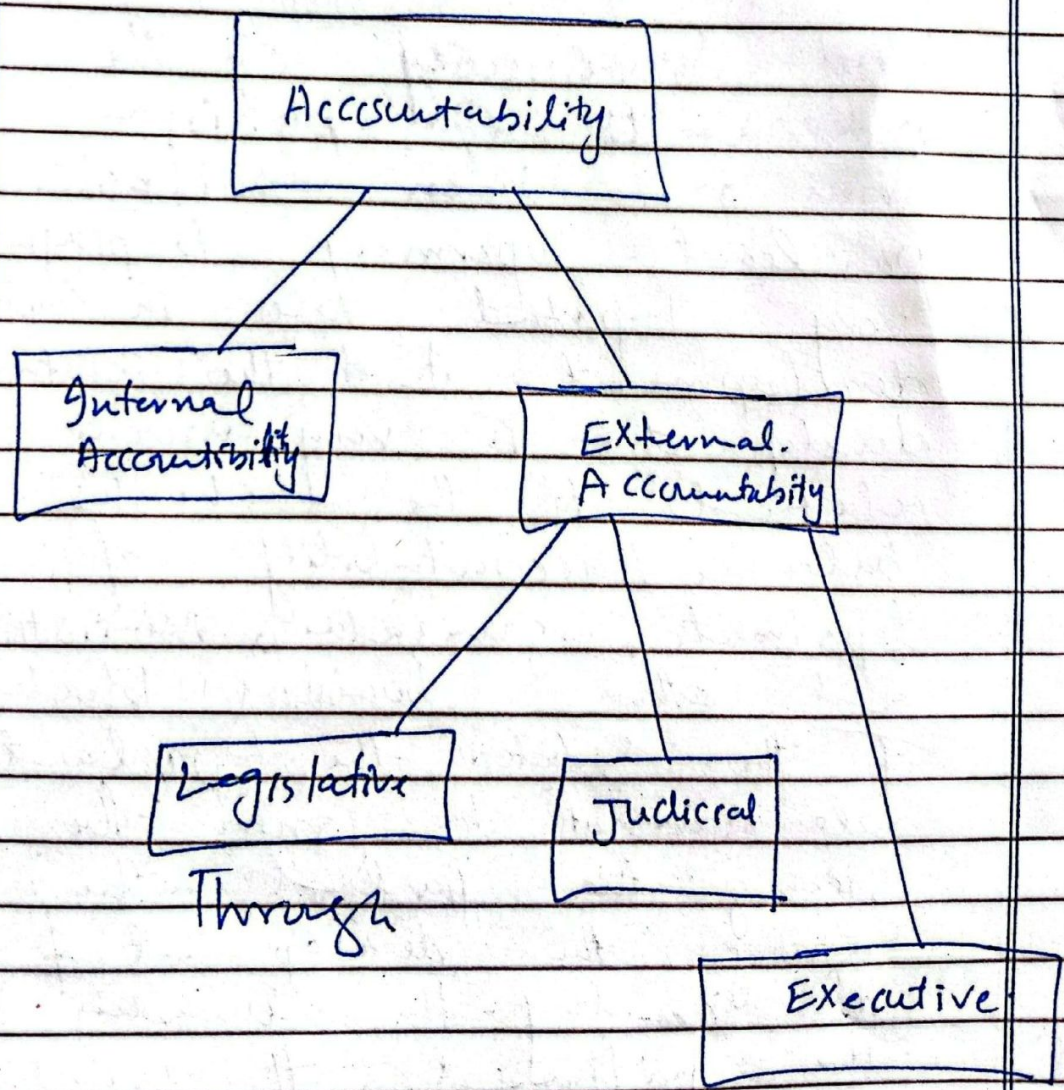 Accountability
Internal
Accountibility
External.
Accountabity
Legislative
Judicial
Through
Executive